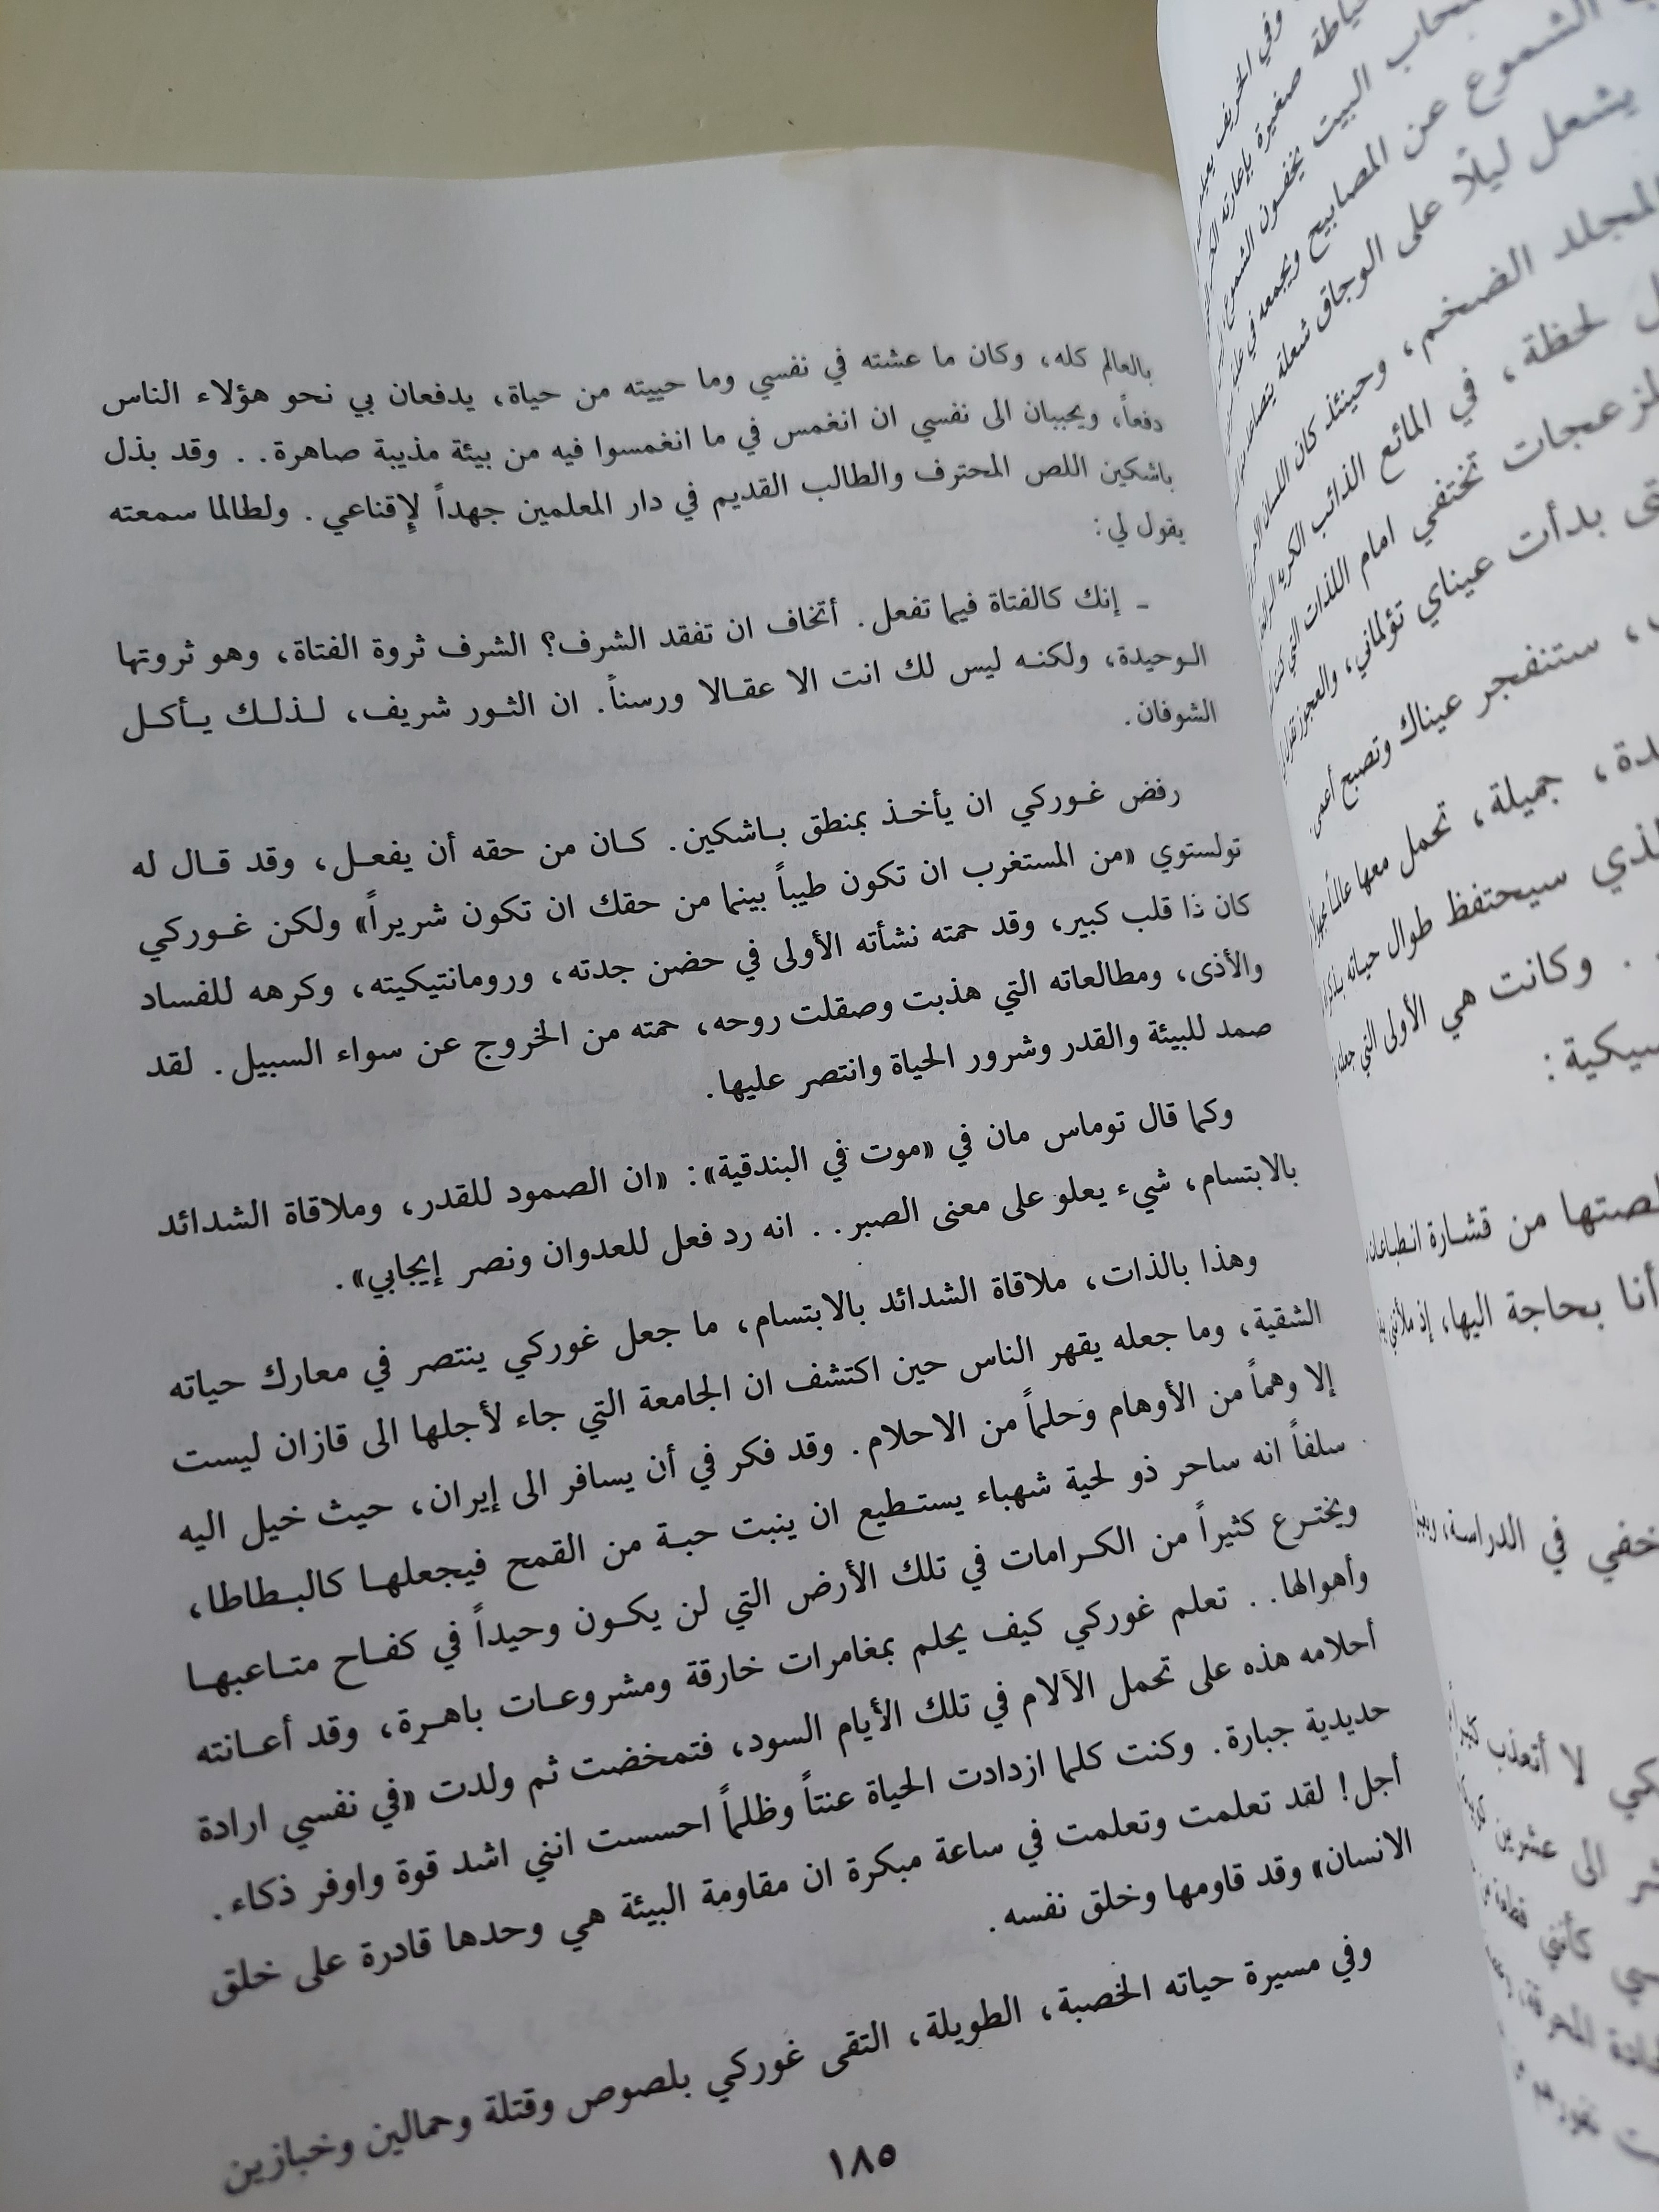 بالعالم كله، وكان ما عشته في نفسي وما حييته من حياة، يدفعان بي نحو هؤلاء الناس
دفعاً، ويحببان الى نفسي ان انغمس في ما انغمسوا فيه من بيئة مذيبة صاهرة.. وقد بذل
باشكين اللص المحترف والطالب القديم في دار المعلمين جهداً لإقناعي. ولطالما سمعته
يقول لي:
ـ إنك كالفتاة فيما تفعل. أتخاف ان تفقد الشرف؟ الشرف ثروة الفتاة، وهو ثروتها
الوحيدة، ولكنه ليس لك انت الا عقالا ورسناً. ان الثور شريف، لذلك يأكل
الشوفان.
رفض غوركي ان يأخذ بمنطق باشكين. كان من حقه أن يفعل، وقد قال له
تولستوي «من المستغرب ان تكون طيباً بينما من حقك ان تكون شريراً» ولكن غوركي
كان ذا قلب كبير، وقد حمته نشأته الأولى في حضن جدته، ورومانتيكيته، وكرهه للفساد
والأذى، ومطالعاته التي هذبت وصقلت روحه، حمته من الخروج عن سواء السبيل. لقد
صمد للبيئة والقدر وشرور الحياة وانتصر عليها.
وكما قال توماس مان في «موت في البندقية»: «ان الصمود للقدر، وملاقاة الشدائد
بالابتسام، شيء يعلو على معنى الصبر.. انه رد فعل للعدوان ونصر إيجابي».
وهذا بالذات، ملاقاة الشدائد بالابتسام، ما جعل غوركي ينتصر في معارك حياته
الشقية، وما جعله يقهر الناس حين اكتشف ان الجامعة التي جاء لأجلها الى قازان ليست
إلا وهماً من الأوهام وحلماً من الاحلام. وقد فكر في أن يسافر الى إيران، حيث خيل اليه
سلفاً انه ساحر ذو لحية شهباء يستطيع ان ينبت حبة من القمح فيجعلها كالبطاطا،
ويخترع كثيراً من الكرامات في تلك الأرض التي لن يكون وحيداً في كفاح متاعبها
وأهوالها.. تعلم غوركي كيف يحلم بمغامرات خارقة ومشروعات باهرة، وقد أعانته
أحلامه هذه على تحمل الآلام في تلك الأيام السود، فتمخضت ثم ولدت «في نفسي ارادة
حديدية جبارة. وكنت كلما ازدادت الحياة عنتاً وظلماً احسست انني اشد قوة واوفر ذكاء.
أجل! لقد تعلمت وتعلمت في ساعة مبكرة ان مقاومة البيئة هي وحدها قادرة على خلق
الانسان» وقد قاومها وخلق نفسه.
وفي مسيرة حياته الخصبة، الطويلة، التقى غوركي بلصوص وقتلة وحمالين وخبازين
١٨٥
وفي الخريف
صغيرة بإعارته
البيت يخفون الشموع
الشموع عن المصابيح ويجمعه في
يشعل ليلًا على الوجاق شعلة
المجلد الضخم، وحينئذ كان اللسان
لحظة، في المائع الذائب الكريه
تختفي امام اللذات التي
بدأت عيناي تؤلماني، والعجوز
ستنفجر عيناك وتصبح أعمى.
جميلة، تحمل معها عالماً
سيحتفظ طوال حياته
. وكانت هي الأولى التي
من قشارة
أنا بحاجة اليها، إذ
في الدراسة،
لا أتعذب
الى عشرين